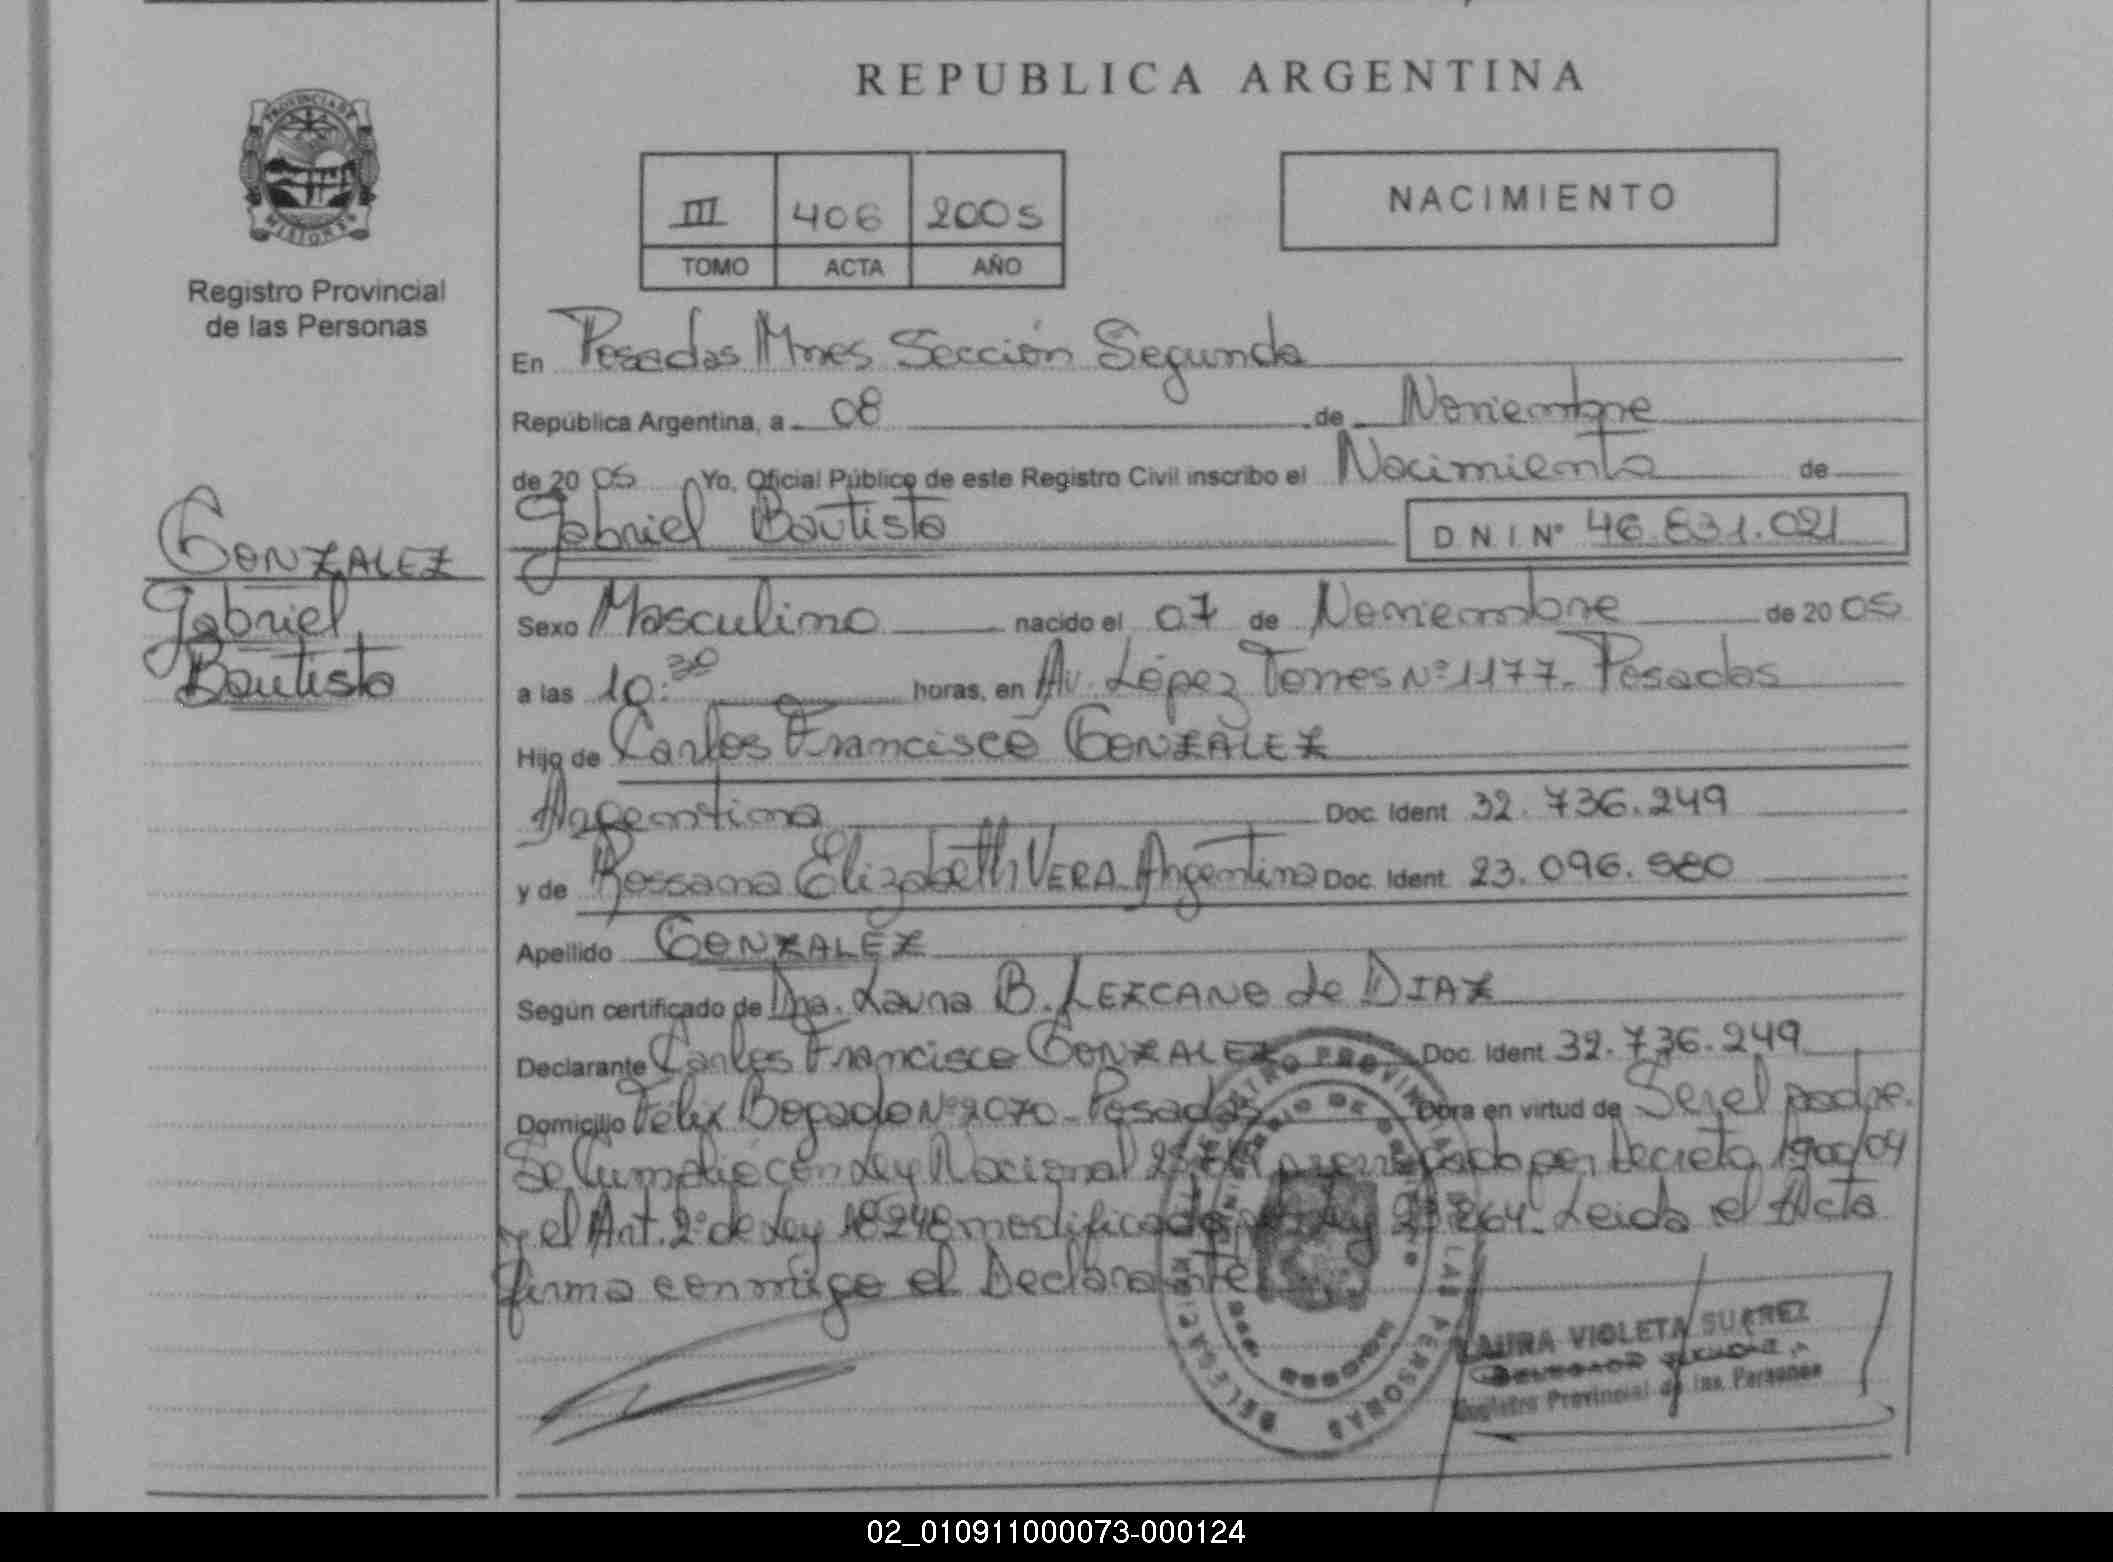 REPUBLICA ARGENTINA
PROVINCIA DE
MISIONES
Registro Provincial
de las Personas
III 406 2005
TOMO ACTA AÑO
NACIMIENTO
En Posadas Mnes Sección Segunda
República Argentina, a 08 de Noviembre
de 2005 Yo, Oficial Público de este Registro Civil inscribo el Nacimiento de
Gabriel Bautista D.N.I. Nº 46.831.021
GONZALEZ
Gabriel
Bautista
Sexo Masculino nacido el 07 de Noviembre de 2005
a las 10:30 horas, en Av. López Torres Nº 1177- Posadas
Hijo de Carlos Francisco GONZALEZ
Argentino Doc. Ident. 32.736.249
y de Rossana Elizabeth VERA Argentina Doc. Ident. 23.096.980
Apellido GONZALEZ
Según certificado de Dra. Laura B. LEZCANO de DIAZ
Declarante Carlos Francisco GONZALEZ Doc. Ident. 32.736.249
Domicilio Félix Bogado Nº 2070- Posadas Obra en virtud de Ser el padre.
Se Cumplió con Ley Nacional por Decreto 1900/04
y el Art. 2º de Ley 18248 modificado Ley 264. Leida el Acta
firma conmigo el Declarante
LAURA VIOLETA SUAREZ
Registro Provincial de las Personas
DELEGACION
LAS PERSONAS
02_010911000073-000124